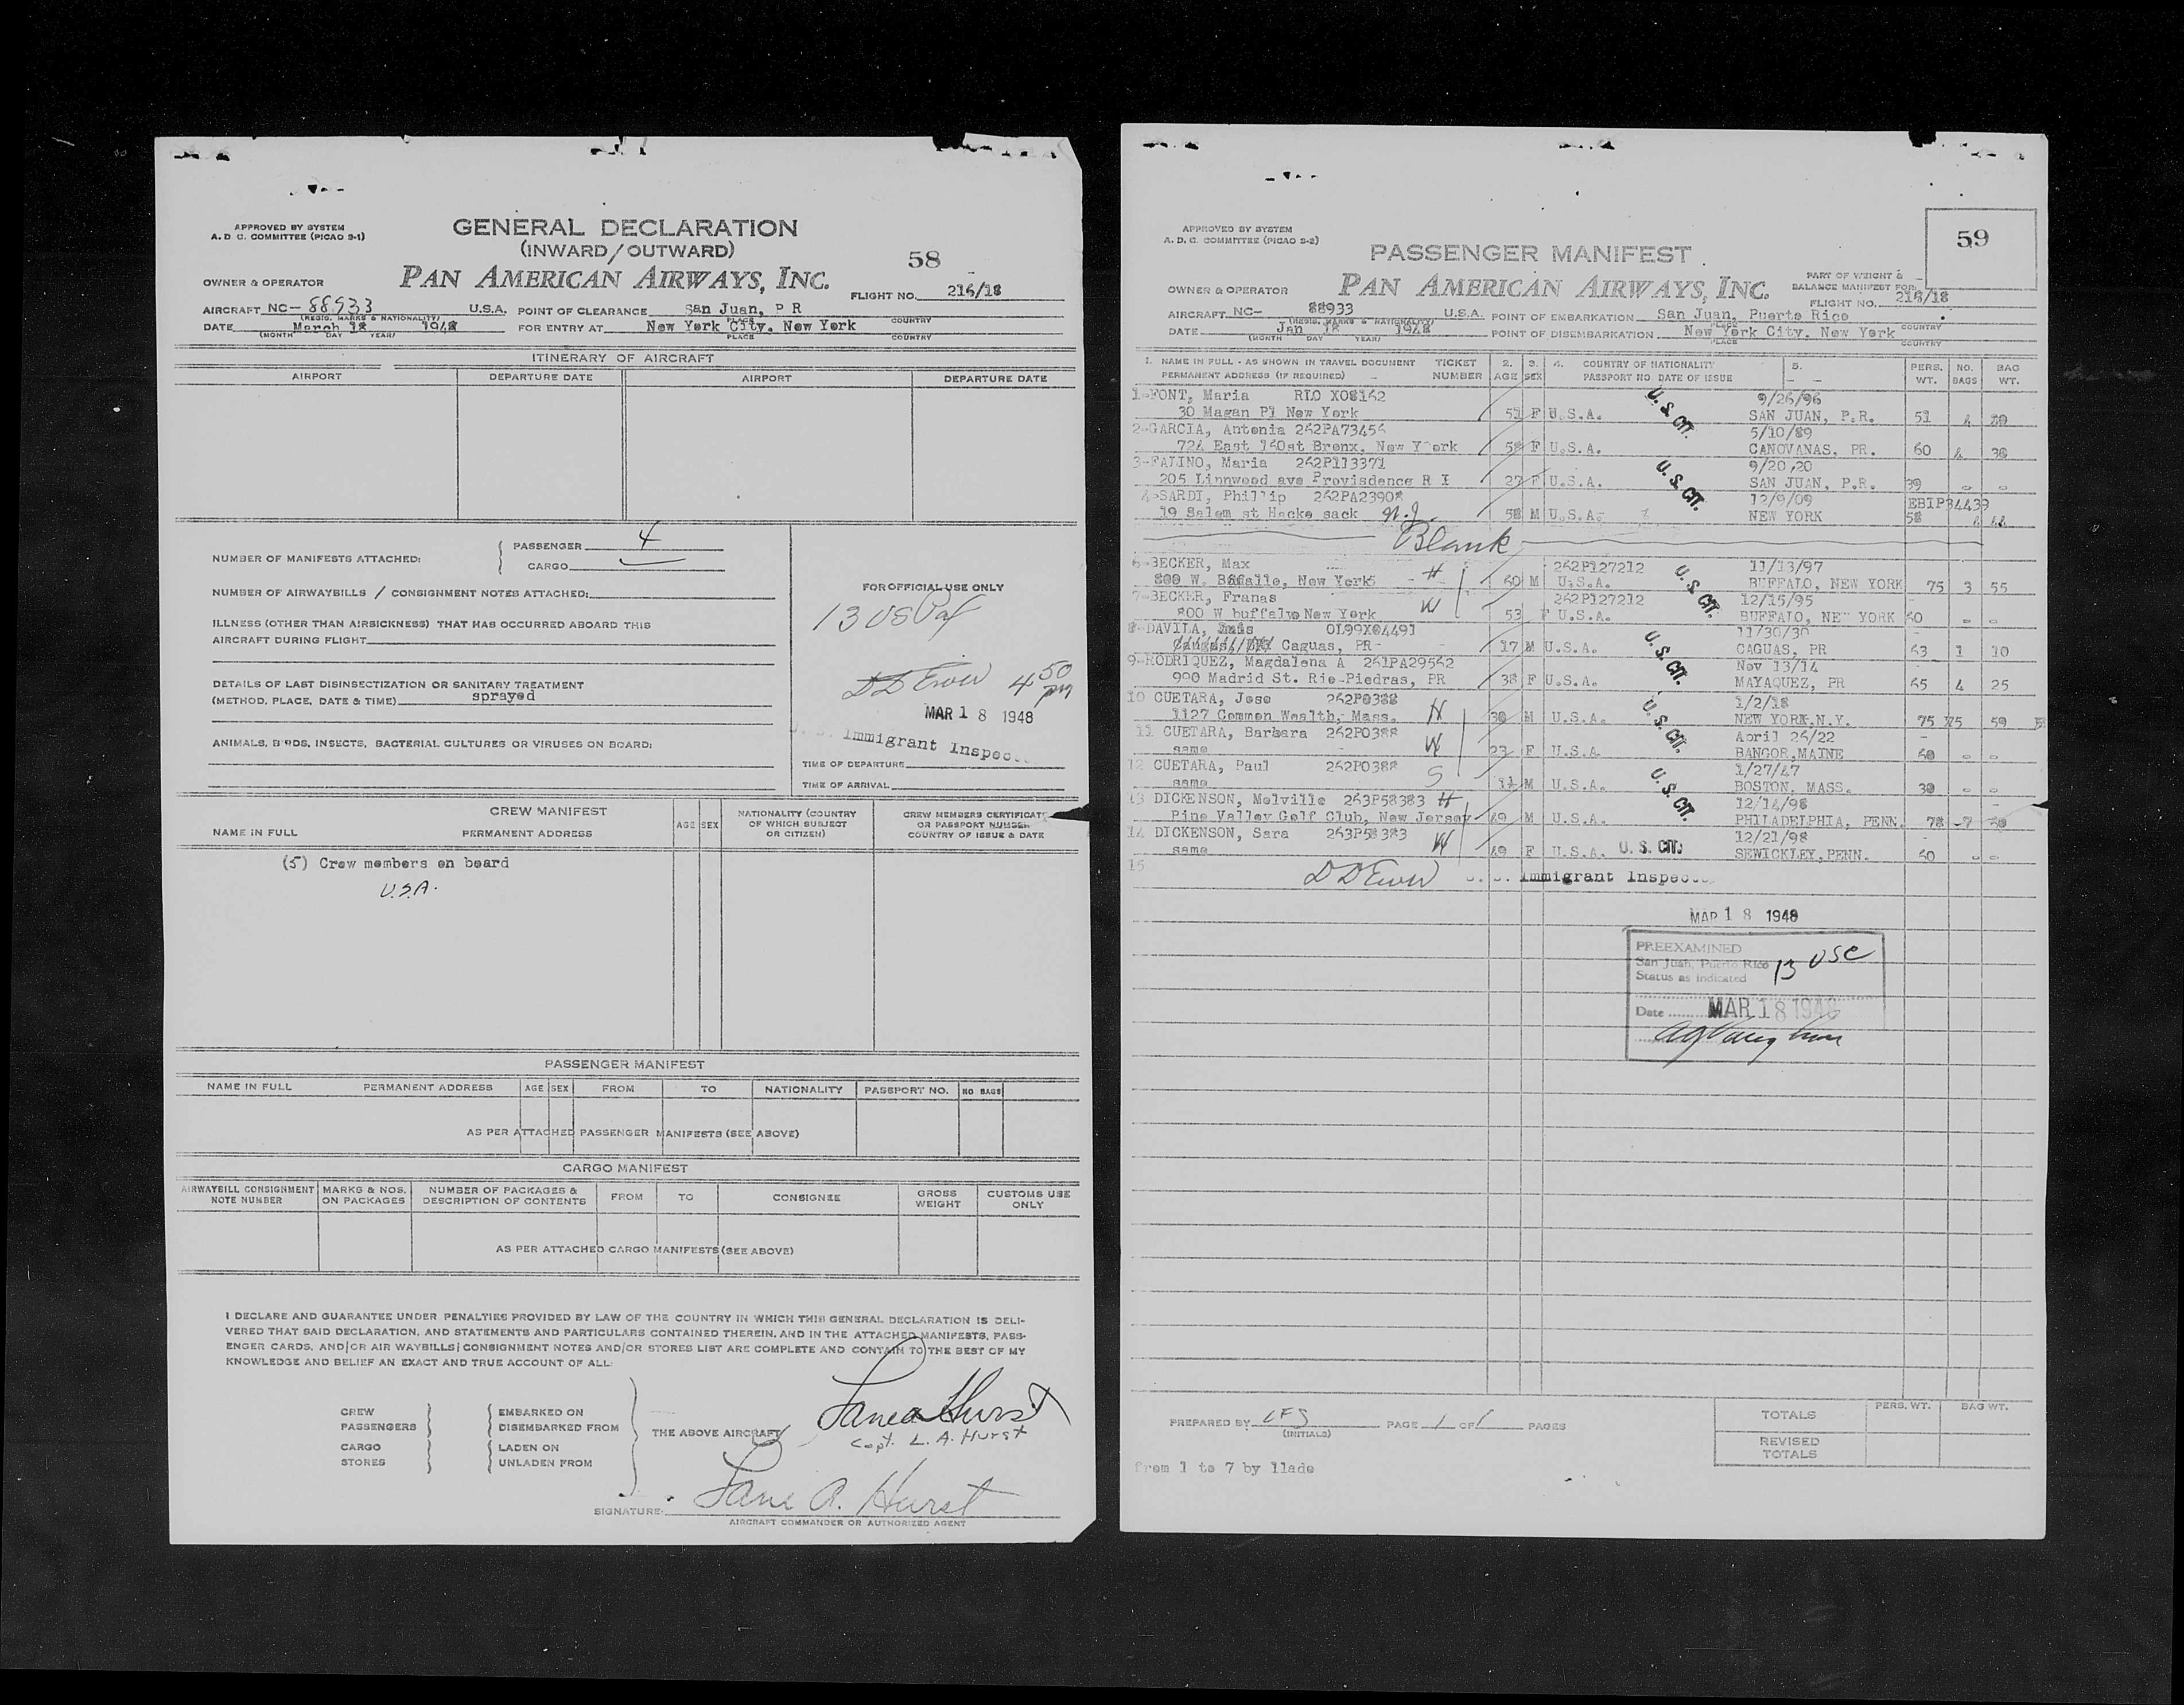 APPROVED BY SYSTEM
A. D. C. COMMITTEE (PICAO S-1)
GENERAL DECLARATION
(INWARD/OUTWARD)
58
OWNER & OPERATOR
PAN AMERICAN AIRWAYS, INC.
FLIGHT NO. 216/18
AIRCRAFT NC- 88933 U.S.A. POINT OF CLEARANCE San Juan, P R
(REGIS. MARKS & NATIONALITY) PLACE COUNTRY
DATE March 18 1948 FOR ENTRY AT New York City. New York
(MONTH DAY YEAR) PLACE COUNTRY
ITINERARY OF AIRCRAFT
AIRPORT DEPARTURE DATE AIRPORT DEPARTURE DATE
NUMBER OF MANIFESTS ATTACHED: PASSENGER 4
CARGO
NUMBER OF AIRWAYBILLS / CONSIGNMENT NOTES ATTACHED:
ILLNESS (OTHER THAN AIRSICKNESS) THAT HAS OCCURRED ABOARD THIS
AIRCRAFT DURING FLIGHT
DETAILS OF LAST DISINSECTIZATION OR SANITARY TREATMENT
(METHOD, PLACE, DATE & TIME) sprayed
ANIMALS, BIRDS, INSECTS, BACTERIAL CULTURES OR VIRUSES ON BOARD:
FOR OFFICIAL USE ONLY
13 US
4 50 pm
MAR 18 1948
Immigrant Inspec
TIME OF DEPARTURE
TIME OF ARRIVAL
CREW MANIFEST
NAME IN FULL PERMANENT ADDRESS AGE SEX
NATIONALITY (COUNTRY
OF WHICH SUBJECT
OR CITIZEN)
CREW MEMBERS CERTIFICATE
OR PASSPORT NUMBER
COUNTRY OF ISSUE & DATE
(5) Crew members on board
U.S.A.
PASSENGER MANIFEST
NAME IN FULL PERMANENT ADDRESS AGE SEX FROM TO NATIONALITY PASSPORT NO. NO BAGS
AS PER ATTACHED PASSENGER MANIFESTS (SEE ABOVE)
CARGO MANIFEST
AIRWAYBILL CONSIGNMENT
NOTE NUMBER
MARKS & NOS.
ON PACKAGES
NUMBER OF PACKAGES &
DESCRIPTION OF CONTENTS
FROM TO CONSIGNEE
GROSS
WEIGHT
CUSTOMS USE
ONLY
AS PER ATTACHED CARGO MANIFESTS (SEE ABOVE)
I DECLARE AND GUARANTEE UNDER PENALTIES PROVIDED BY LAW OF THE COUNTRY IN WHICH THIS GENERAL DECLARATION IS DELI-
VERED THAT SAID DECLARATION, AND STATEMENTS AND PARTICULARS CONTAINED THEREIN, AND IN THE ATTACHED MANIFESTS, PASS-
ENGER CARDS, AND/OR AIR WAYBILLS/CONSIGNMENT NOTES AND/OR STORES LIST ARE COMPLETE AND CONTAIN TO THE BEST OF MY
KNOWLEDGE AND BELIEF AN EXACT AND TRUE ACCOUNT OF ALL:
CREW
PASSENGERS
CARGO
STORES
EMBARKED ON
DISEMBARKED FROM
LADEN ON
UNLADEN FROM
THE ABOVE AIRCRAFT
Capt. L. A. Hurst
SIGNATURE. Lane A. Hurst
AIRCRAFT COMMANDER OR AUTHORIZED AGENT
APPROVED BY SYSTEM
A. D. C. COMMITTEE (PICAO S-2)
59
PASSENGER MANIFEST
OWNER & OPERATOR
PAN AMERICAN AIRWAYS, INC.
PART OF WEIGHT &
BALANCE MANIFEST FOR:
FLIGHT NO. 216/18
AIRCRAFT NC- 88933 U.S.A. POINT OF EMBARKATION San Juan, Puerto Rico
(REGIS. MARKS & NATIONALITY) PLACE COUNTRY
DATE Jan 18 1948 POINT OF DISEMBARKATION New York City. New York
(MONTH DAY YEAR) PLACE COUNTRY
1. NAME IN FULL - AS SHOWN IN TRAVEL DOCUMENT TICKET 2. 3. 4. COUNTRY OF NATIONALITY 5. PERS. NO. BAG
PERMANENT ADDRESS (IF REQUIRED) NUMBER AGE SEX PASSPORT NO. DATE OF ISSUE WT. BAGS WT.
1-FONT, Maria RLO X08162 9/26/96
30 Magan Pl New York 51 F U.S.A. U. S. CIT. SAN JUAN, P.R. 51 4 30
2-GARCIA, Antonia 262PA73456 5/10/89
724 East 160st Bronx, New York 58 F U.S.A. CANOVANAS, PR. 60 4 38
3-FALINO, Maria 262P113371 9/20,20
205 Linnwood ave Provisdence R I 27 F U.S.A. U. S. CIT. SAN JUAN, P.R. 39 - -
4-SARDI, Phillip 262PA23908 12/9/09 EBIP34439
19 Salem st Hacke sack N.J. 58 M U.S.A. NEW YORK 58 4 44
Blank
6-BECKER, Max 262P127212 11/13/97
800 W. Buffalle, New York H 60 M U.S.A. U. S. CIT. BUFFALO, NEW YORK 75 3 55
7-BECKER, Franas 262P127212 12/15/95
800 W buffalvo New York W 53 F U.S.A. BUFFALO, NEW YORK 60 - -
8-DAVILA, OL99X04491 11/30/30
Caguas, PR 17 M U.S.A. U. S. CIT. CAGUAS, PR 63 1 10
9-RODRIQUEZ, Magdalena A 261PA29562 Nov 13/14
990 Madrid St. Rio-Piedras, PR 38 F U.S.A. MAYAQUEZ, PR 65 4 25
10 CUETARA, Jose 262P0388 1/2/18
1127 Common Wealth, Mass. H 30 M U.S.A. U. S. CIT. NEW YORK,N.Y. 75 75 59
11 CUETARA, Barbara 262P0388 April 26/22
same W 23 F U.S.A BANGOR,MAINE 60 - -
12 CUETARA, Paul 262P0388 1/27/47
same S 14 M U.S.A. U. S. CIT. BOSTON, MASS. 30 - -
13 DICKENSON, Melville 263P58383 H 12/14/98
Pine Valley Golf Club, New Jersey 49 M U.S.A. PHILADELPHIA, PENN. 78 -7 60
14 DICKENSON, Sara 263P58383 12/21/98
same W 49 F U.S.A. U. S. CIT. SEWICKLEY,PENN. 60 - -
15
Immigrant Inspec
MAR 18 1948
PREEXAMINED
San Juan, Puerto Rico 13 USC
Status as indicated
Date MAR 18 1948
PREPARED BY LFS PAGE 1 OF 1 PAGES
(INITIALS)
TOTALS PERS. WT. BAG WT.
REVISED
TOTALS
from 1 to 7 by llade